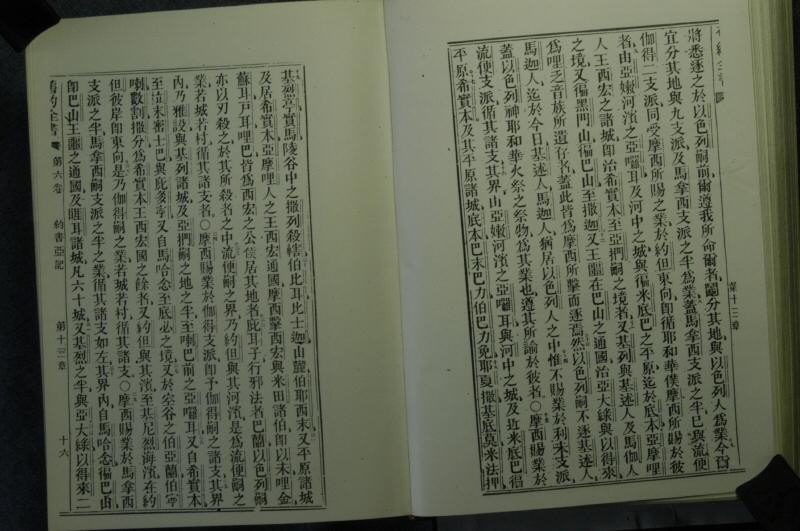 第十三章
將悉逐之於以色列嗣前爾遵我所命爾者鬮分其地與以色列人爲業今
宜分其地與九支派及馬拿西支派之半爲業蓋馬拿西支派之半已與流便
伽得二支派同受摩西所賜之業於約但東向卽循耶和華僕摩西所賜於彼
者由亞嫩河濱之亞囉耳及河中之城與徧米底巴之平原迄於底本亞摩哩
人王西宏之諸城卽治希實本至亞捫嗣之境者又基列與基述人及馬伽人
之境又徧黑門山徧巴山至撒迦又王噩在巴山之通國治亞大綠與以得來
爲哩乏音族所遺存者蓋此皆爲摩西所擊而逐焉然以色列嗣不逐基述人
馬迦人迄於今日基述人馬迦人猶居以色列人之中惟不賜業於利未支派
蓋以色列神耶和華火祭之祭物爲其業也遵其所諭於彼者〇摩西賜業於
流便支派循其諸支其界由亞嫩河濱之亞囉耳與河中之城及近米底巴徧
平原希實本及其平原諸城底本巴末巴力伯巴力免耶夏撒基底莫米法押
基列亭實馬陵谷中之撒列殺轄伯比耳比士迦山麓伯耶西末又平原諸城
及居希實本亞摩哩人之王西宏通國摩西擊西宏與米田諸伯卽以未哩金
蘇耳戸耳哩巴皆爲西宏之公侯居其地者庇耳子行邪法者巴蘭以色列嗣
亦以刃殺之於其所殺者之中流便嗣之界乃約但與其河濱是爲流便嗣之
業若城若村循其諸支者〇摩西賜業於伽得支派卽予伽得嗣之諸支其界
內乃雅設與基列諸城及亞捫嗣之地之半至喇巴前之亞囉耳又自希實本
至拉末密士巴與庇多寧又自馬哈念至底必之境又於宗谷之伯亞蘭伯寧
喇數割撒分爲希實本王西宏國之餘者又約但與其濱至基尼烈海濱在約
但彼岸卽東向是乃伽得嗣之業若城若村循其諸支〇摩西賜業於馬拿西
支派之半馬拿西嗣支派之半之業循其諸支如左其界內自馬哈念徧巴山
卽巴山王噩之通國及睚耳諸城凡六十城又基烈之半與亞大綠以得來二
舊約全書 第六卷 約書亞記 第十三章 十六